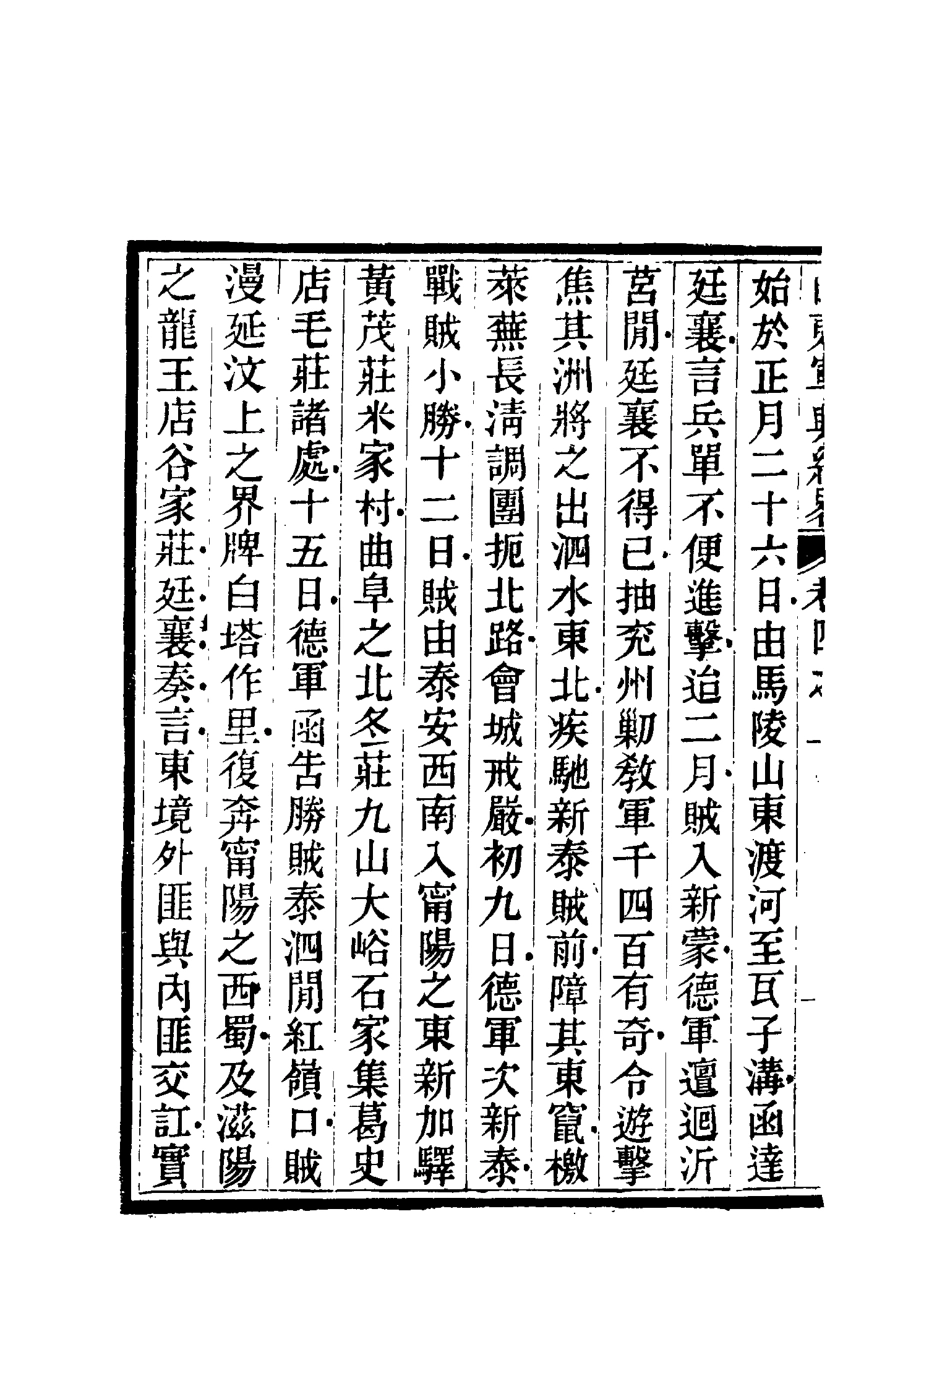 山東軍興紀略 卷四之一
始於正月二十六日由馬陵山東渡河至瓦子溝函達
廷襄言兵單不便進擊迨二月賊入新蒙德軍邅迴沂
莒閒廷襄不得已抽兖州勦教軍千四百有奇令遊擊
焦其洲將之出泗水東北疾馳新泰賊前障其東竄檄
萊蕪長淸調團扼北路會城戒嚴初九日德軍次新泰
戰賊小勝十二日賊由泰安西南入甯陽之東新加驛
黃茂莊米家村曲阜之北冬莊九山大峪石家集葛史
店毛莊諸處十五日德軍函告勝賊泰泗閒紅嶺口賊
漫延汶上之界牌白塔作里復奔甯陽之西蜀及滋陽
之龍王店谷家莊廷襄奏言東境外匪與內匪交訌實